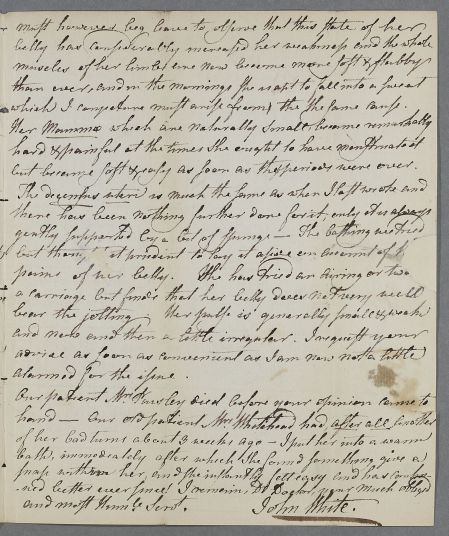 must however beg leave to observe that this state of her
belly has considerably increased her weakness and the whole
muscles of her limbs are now become more soft & flabby
than ever, and in the mornings she is apt to fall into a sweat
which I conjecture must arise from the same cause.
Her Mammæ which are naturally small, became remarkably
hard & painful at the times she ought to have menstruated
but became soft & easy as soon as these periods were over.
The descensus uteri is much the same as when I last wrote and
there has been nothing further done for it, only it is always
gently supported by a bit of spunge — The bathing we tried
but thought it prudent to lay it aside on account of
pains of her belly. She has tried an airing or two
a carriage but finds that her belly does not very well
bear the jolting Her pulse is generally small & weak
and now and then a little irregular. I request your
advice as soon as convenient as I am now not a little
alarmed for the issue.
Our patient Mr. died before your opinion came to
hand — Our old patient Mrs. Whitehead had after all another
of her bad turns about 3 weeks ago — I put her into a warm
bath, immediately after which she found something give a
snap within her, and she instantly felt easy and has continu-
ned better ever since I remain, Dr. Doctor your much obliged
and most Humle. Servt. John White.